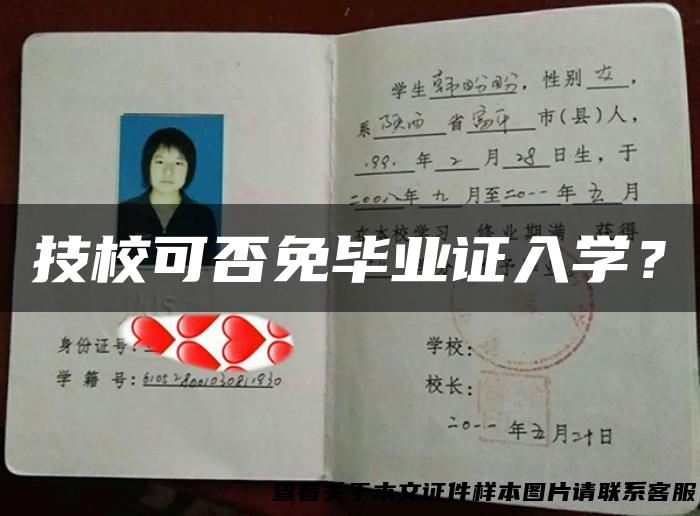 学生韩盼盼，性别女，
系陕西省富平市(县)人，
1991年2月28日生，于
二00八年九月至二0一一年五月
在本校学习 修业期满
技校可否免毕业证入学？
身份证号：
学籍号：
学校：
校长：
二0一一年五月二十日
查看关于本文证件样本图片请联系客服